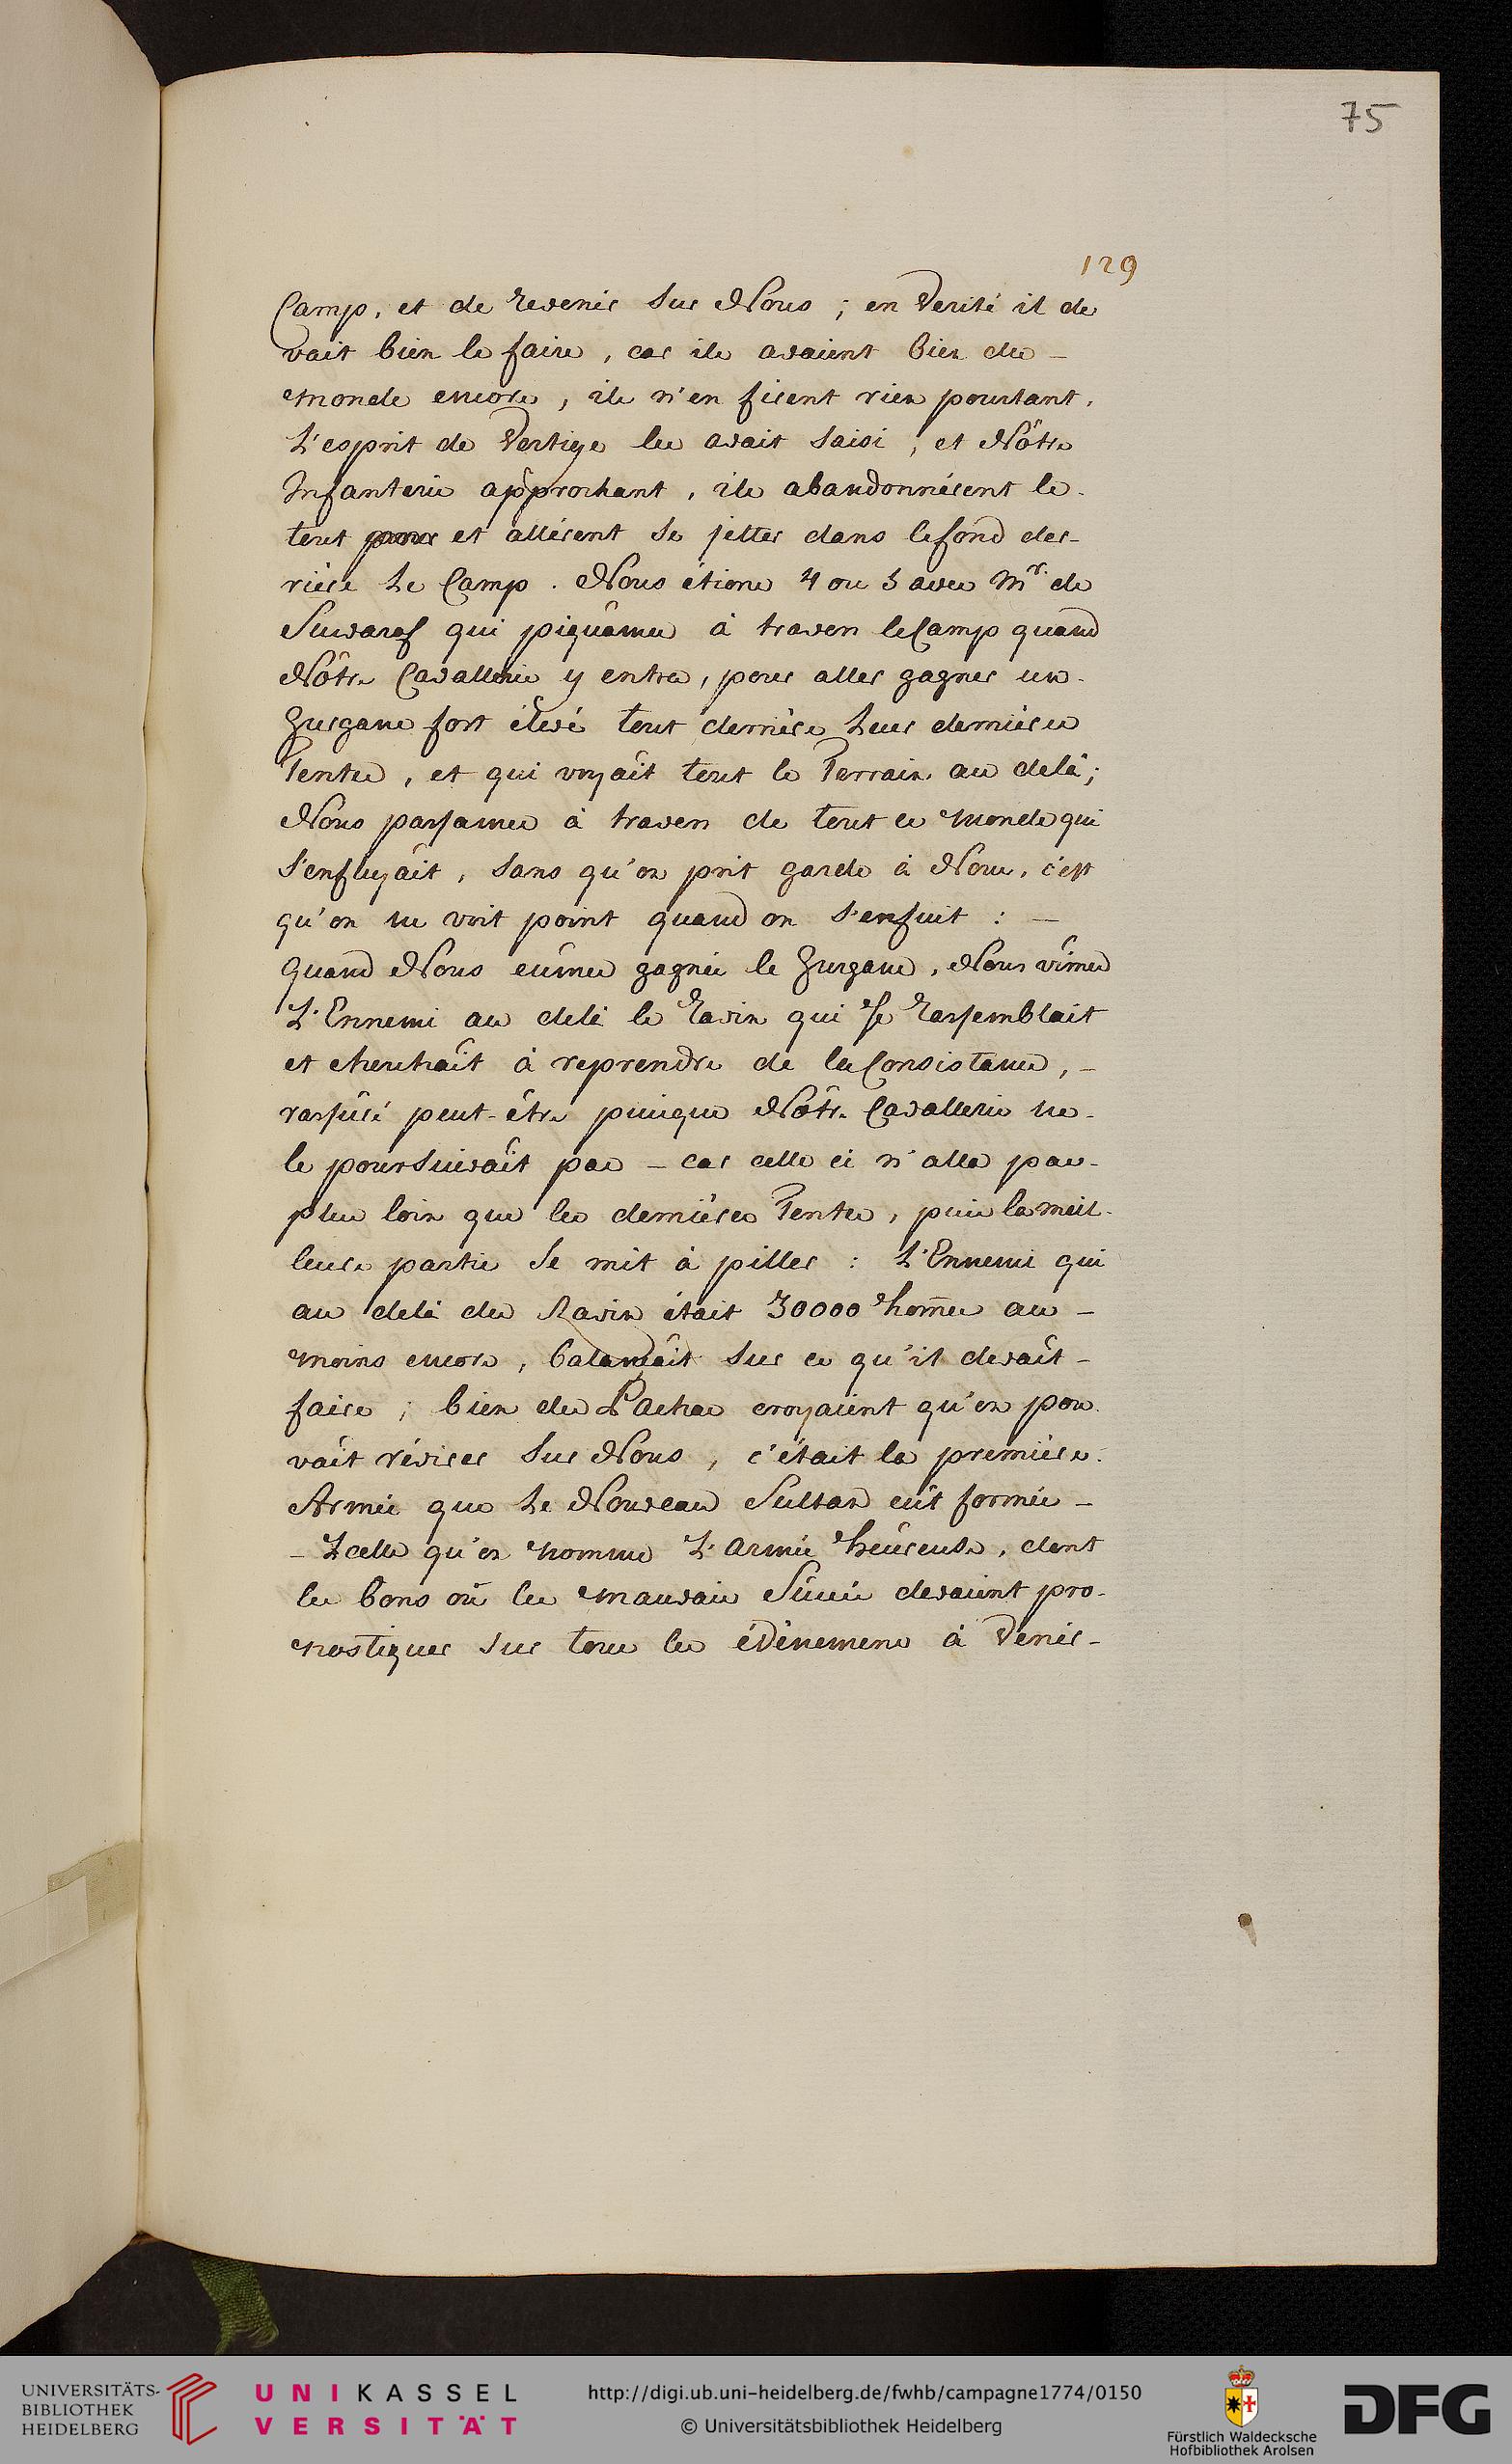 75
129
Camp, et de revenir sur Nous ; en Verité il de
vait bien le faire, car ils avaient bien du -
monde encore, ils n'en firent rien pourtant.
L'esprit de Vertige les avait saisi, et Nôtre
Infanterie approchant, ils abandonnérent le
tout et allérent se jetter dans le fond der-
riére Le Camp. Nous étions 4 ou 5 avec Mr. de
Suwarof qui piquâmes à travers le Camp quand
Nôtre Cavallerie y entra, pour aller gagner un
Gurgane fort élevé tout derriére Leur derniéres
Tentes, et qui voyait tout le Terrain au delà ;
Nous passames à travers de tout ce monde qui
s'enfuyait, sans qu'on prit garde à Nous, c'est
qu'on ne voit point quand on s'enfuit : -
Quand Nous eûmes gagnés le Gurgane, Nous vimes
L'Ennemi au delà le Ravin qui se Rassemblait
et cherchait à reprendre de la Consistance, -
rassuré peut-être puisque Nôtre Cavallerie ne
le poursuivait pas - car celle ci n'alla pas
plus loin que les derniéres Tentes, puis la meil-
leure partie se mit à piller : L'Ennemi qui
au delà du Ravin était 30000 homes au -
moins encore, balançait sur ce qu'il devait -
faire ; bien des Pachas croyaient qu'on pou
vait révirer sur Nous, c'était la premiére
Armée que Le Nouveau Sultan eût formée -
- celle qu'on nomme L'armée heureuse, dont
les bons où les mauvais Succès devaient pro-
nostiquer sur tous les évènemens à Venir -
UNIVERSITÄTS-
BIBLIOTHEK
HEIDELBERG
UNIKASSEL
VERSITÄT
http://digi.ub.uni-heidelberg.de/fwhb/campagne1774/0150
© Universitätsbibliothek Heidelberg
Fürstlich Waldecksche
Hofbibliothek Arolsen
DFG